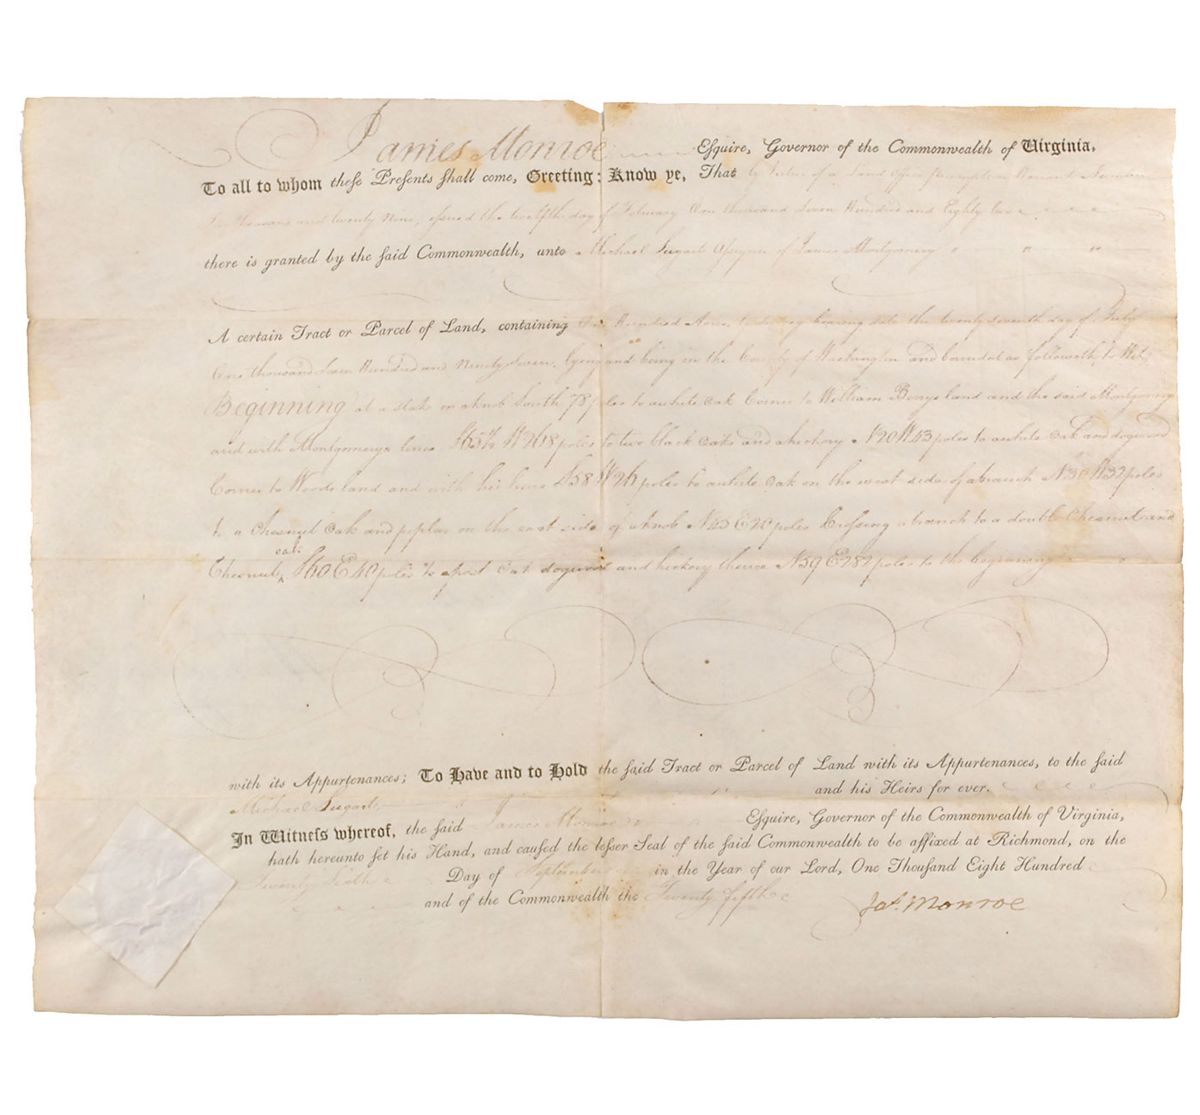 James Monroe Esquire, Governor of the Commonwealth of Virginia,
To all to whom these Presents shall come, Greeting: Know ye, That by Virtue of a Land Office
and twenty Nine, issued the twelfth day of February One thousand Seven Hundred and Eighty two
there is granted by the said Commonwealth, unto Michael Sugart Assignee of James Montgomery " " "
A certain Tract or Parcel of Land, containing Hundred Acres bearing date the twenty seventh day of July
One thousand Seven Hundred and Ninety Seven, lying and being in the County of Washington and bounded as followeth, to Wit,
Beginning at a stake on a knob South 78 poles to a white oak Corner to William Berrys land and the said Montgomery
and with Montgomerys lines S65 W268 poles to two black oaks and a hickory N20W43 poles to a white oak and dogwood
Corner to Woods land and with his lines S58W26 poles to a white oak on the west side of a branch N30W32 poles
to a Chesnut oak and poplar on the east side of a knob N45E20 poles Crossing a branch to a double Chesnut and
Chesnut oak S60E40 poles to a post oak dogwood and hickory thence N39E282 poles to the begining
with its Appurtenances; To Have and to Hold the said Tract or Parcel of Land with its Appurtenances, to the said
Michael Sugart and his Heirs for ever.
In Witness whereof, the said James Monroe Esquire, Governor of the Commonwealth of Virginia,
hath hereunto set his Hand, and caused the lesser Seal of the said Commonwealth to be affixed at Richmond, on the
Twenty Sixth Day of September in the Year of our Lord, One Thousand Eight Hundred
and of the Commonwealth the Twenty fifth
Jas. Monroe